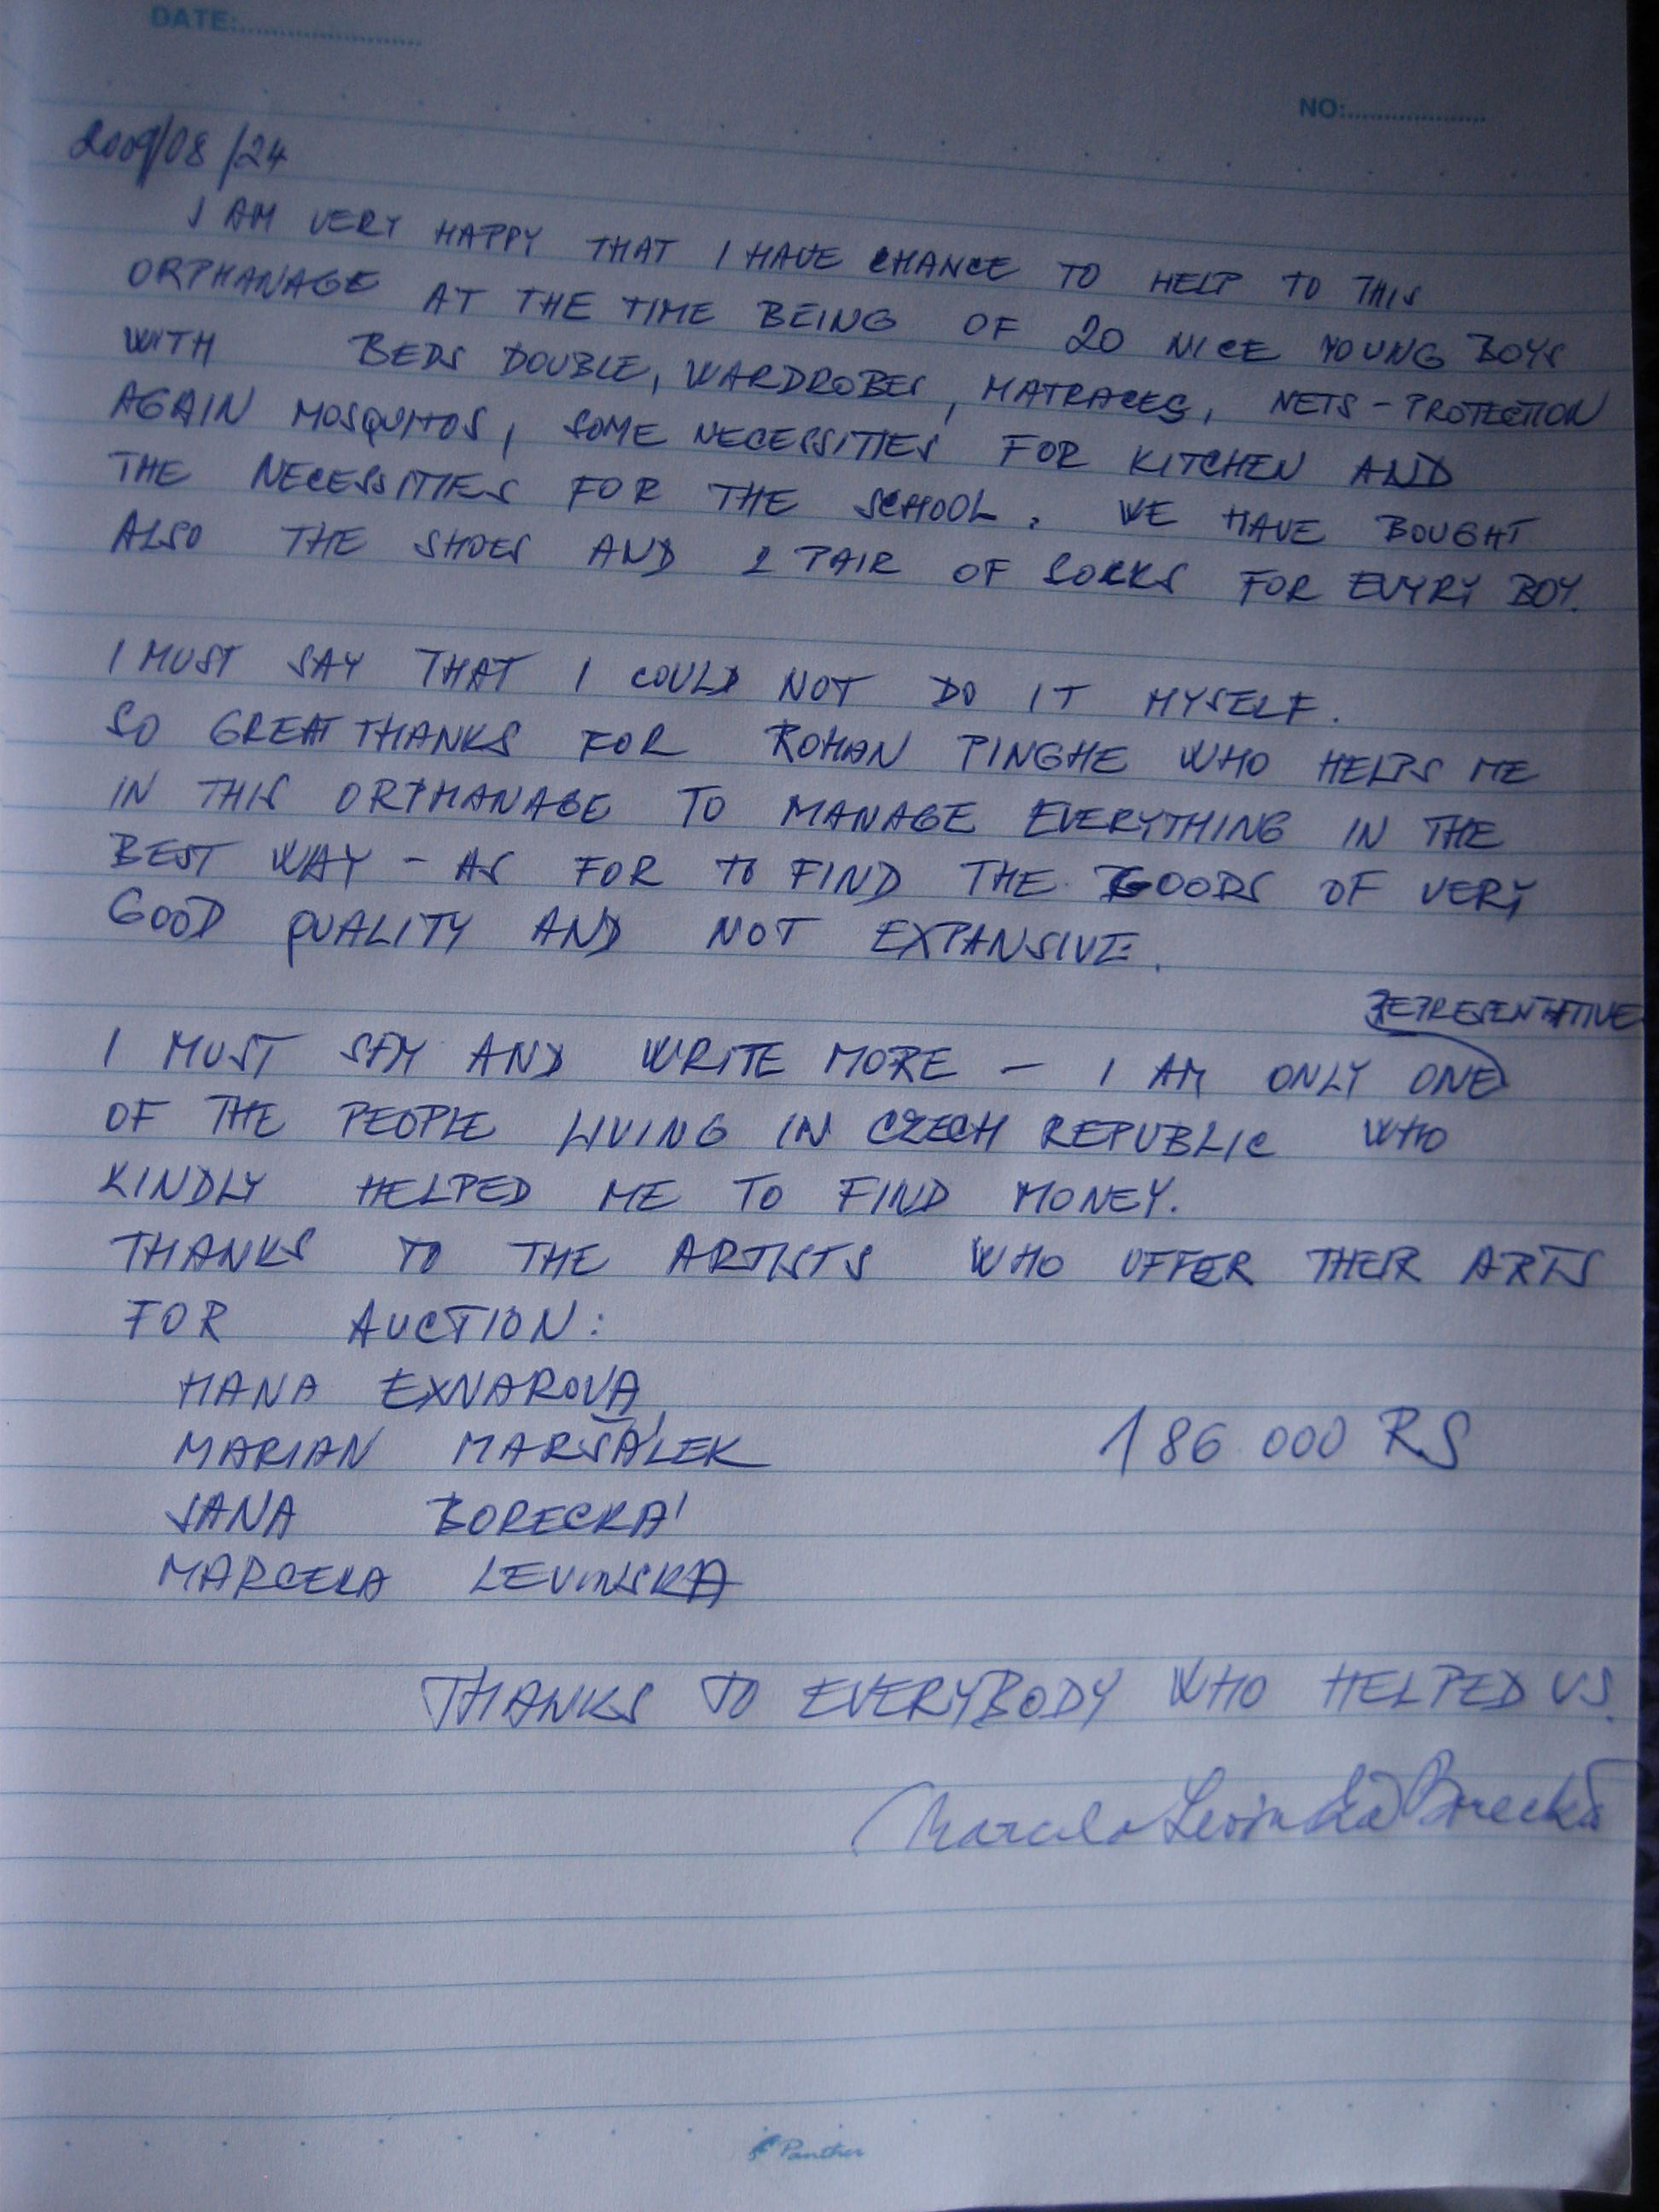 DATE:........................
NO:.....................
2009/08/24
I AM VERY HAPPY THAT I HAVE CHANCE TO HELP TO THIS
ORPHANAGE AT THE TIME BEING OF 20 NICE YOUNG BOYS
WITH BEDS DOUBLE, WARDROBES, MATRACES, NETS - PROTECTION
AGAIN MOSQUITOS, SOME NECESSITIES FOR KITCHEN AND
THE NECESSITIES FOR THE SCHOOL. WE HAVE BOUGHT
ALSO THE SHOES AND 2 PAIR OF SOCKS FOR EVYRY BOY.
I MUST SAY THAT I COULD NOT DO IT MYSELF.
SO GREAT THANKS FOR ROHAN PINGHE WHO HELPS ME
IN THIS ORPHANAGE TO MANAGE EVERYTHING IN THE
BEST WAY - AS FOR TO FIND THE GOODS OF VERY
GOOD QUALITY AND NOT EXPANSIVE.
REPRESENTATIVE
I MUST SAY AND WRITE MORE - I AM ONLY ONE
OF THE PEOPLE LIVING IN CZECH REPUBLIC WHO
KINDLY HELPED ME TO FIND MONEY.
THANKS TO THE ARTISTS WHO OFFER THEIR ARTS
FOR AUCTION:
HANA EXNAROVA
MARIAN MARŠÁLEK
186 000 RS
JANA BORECKÁ
MARCELA LEVINSKA
THANKS TO EVERYBODY WHO HELPED US.
Marcela Levinská Borecká
Panther